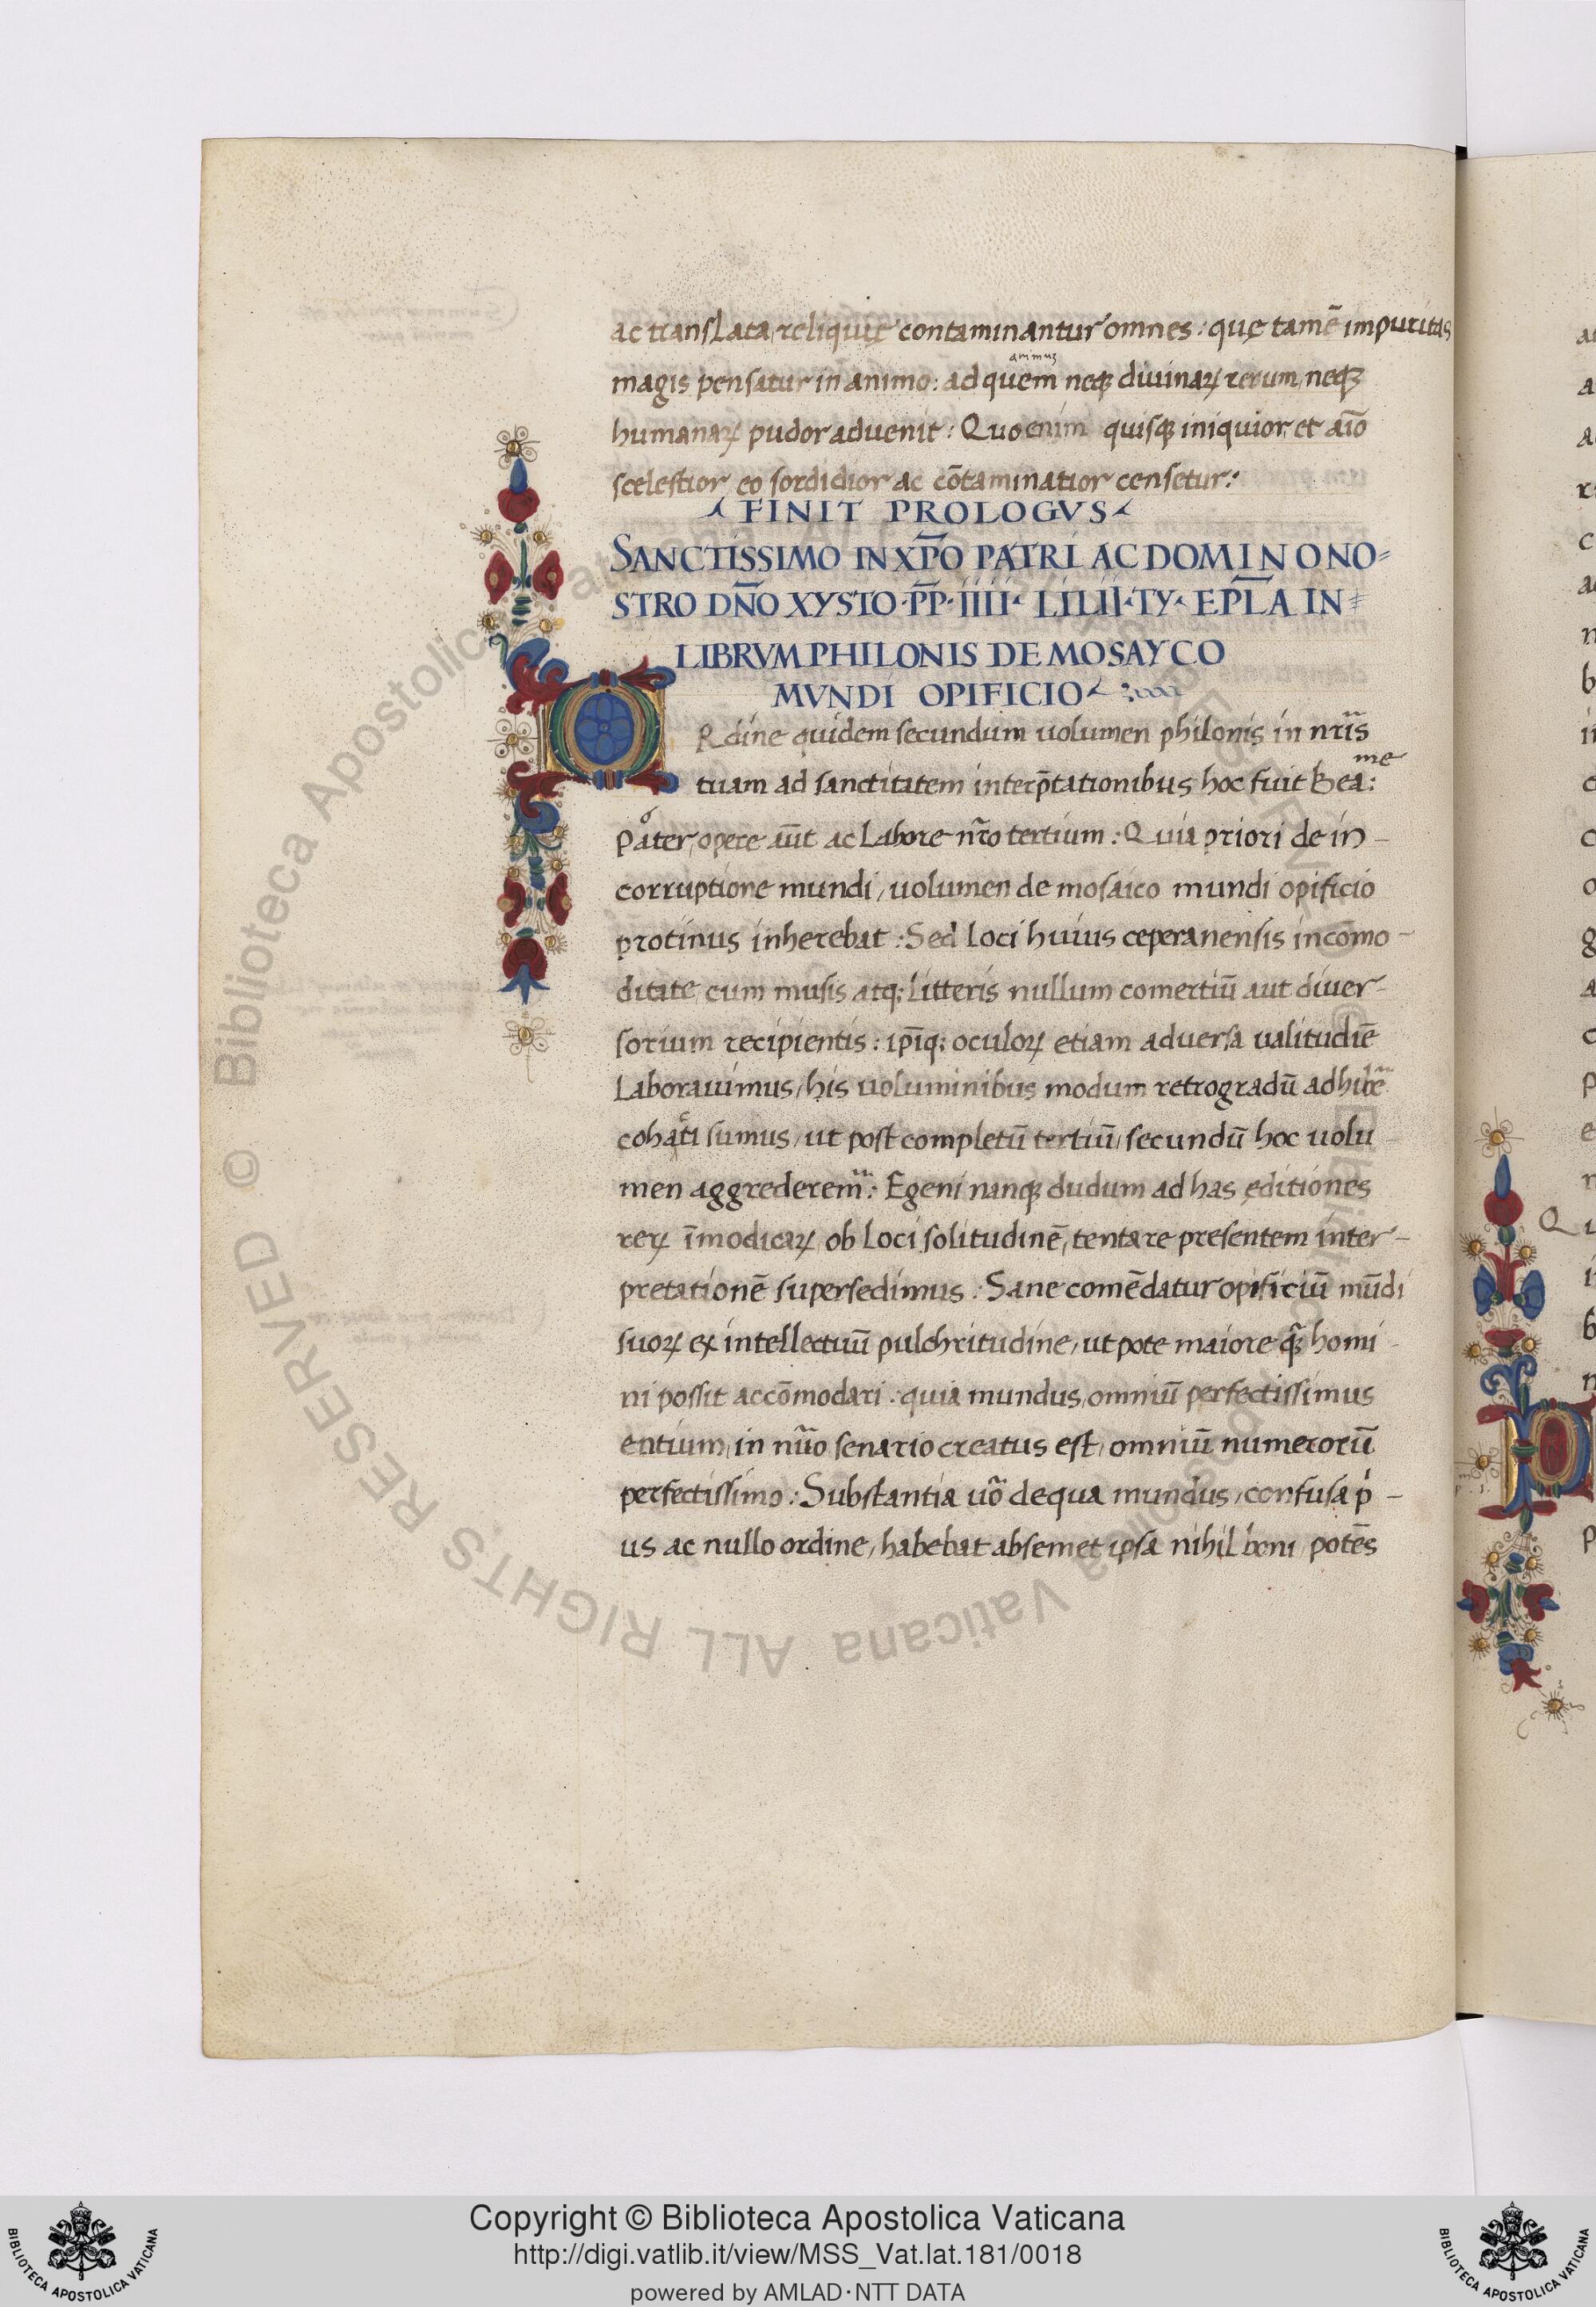 ac translata, reliquie contaminantur omnes: quę tamē impuritas
animus
magis pensatur in animo: ad quem neqꝫ diuinaꝝ rerum, neqꝫ
humanaꝝ pudor aduenit: Quo enim quisqꝫ iniquior, et aīo
scelestior, eo sordidior ac cōtaminatior censetur:
FINIT PROLOGVS
SANCTISSIMO IN XP̄O PATRI AC DOMINO NO=
STRO DN̄O XYSTO·P̄P·IIII· LILII·TY· EPL̄A IN
LIBRVM PHILONIS DE MOSAYCO
MVNDI OPIFICIO
ORdine quidem secundum uolumen philonis in nr̄is
tuam ad sanctitatem interp̄tationibus hoc fuit Bea:me
Pater, opere aūt ac labore nr̄o tertium: Quia priori de in-
corruptione mundi, uolumen de mosaico mundi opificio
protinus inherebat: Sed loci huius ceperanensis incōmo-
ditate, cum musis atq; litteris nullum comertiū aut diuer-
sorium recipientis: ip̄iq; oculoꝝ etiam aduersa ualitudiē
laborauimus, his uoluminibus modum retrogradū adhibē
cohati sumus, ut post completū tertiū, secundū hoc uolu
men aggrederem̄: Egeni nanqꝫ dudum ad has ęditiones
reꝝ īmodicaꝝ, ob loci solitudinē, tentare presentem inter-
pretationē supersedimus: Sane comēdatur opificiū mūdi
suoꝝ ex intellectuū pulchritudine, ut pote maiore q̄ꝫ homi-
ni possit accōmodari: quia mundus, omniū perfectissimus
entium, in nūo senario creatus est, omniū numerorū
perfectissimo: Substantia uō de qua mundus, confusa p-
us ac nullo ordine, habebat absemet ipsa nihil boni, potēs
Q
Copyright © Biblioteca Apostolica Vaticana
http://digi.vatlib.it/view/MSS_Vat.lat.181/0018
powered by AMLAD·NTT DATA
BIBLIOTECA APOSTOLICA VATICANA
BIBLIOTECA APOSTOLICA VATICANA
© Biblioteca Apostolica Vaticana ALL RIGHTS RESERVED